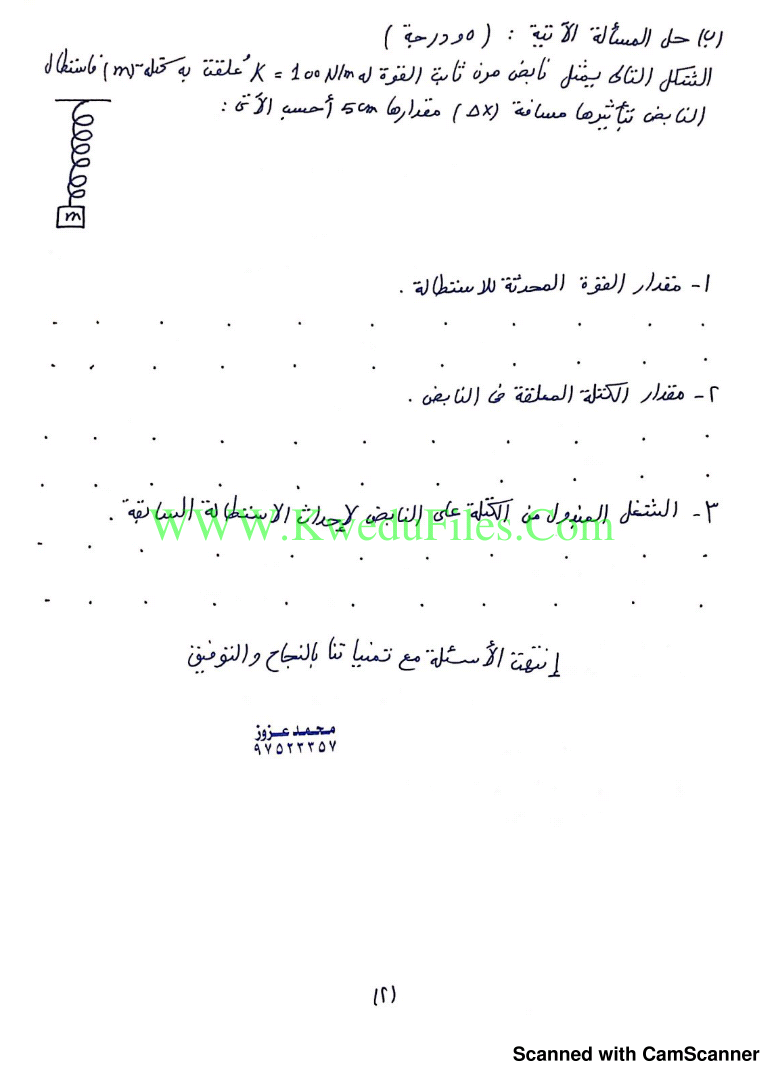 (ب) حل المسألة الآتية : ( ٥ درجة )
الشكل التالى يمثل نابض مرن ثابت القوة له K = 100 N/m عُلقت به كتلة (m) فاستطال
النابض تتأثيرها مسافة (ΔX) مقدارها 5cm أحسب الآتى :
m
١- مقدار القوة المحدثة للاستطالة .
٢- مقدار الكتلة المعلقة فى النابض .
٣- الشغل المبذول من الكتلة على النابض لإحداث الاستطالة السابقة .
WWW.KweduFiles.Com
إنتهت الأسئلة مع تمنياتنا بالنجاح والتوفيق
محمد عزوز
٩٧٥٢٢٣٥٧
(٢)
Scanned with CamScanner